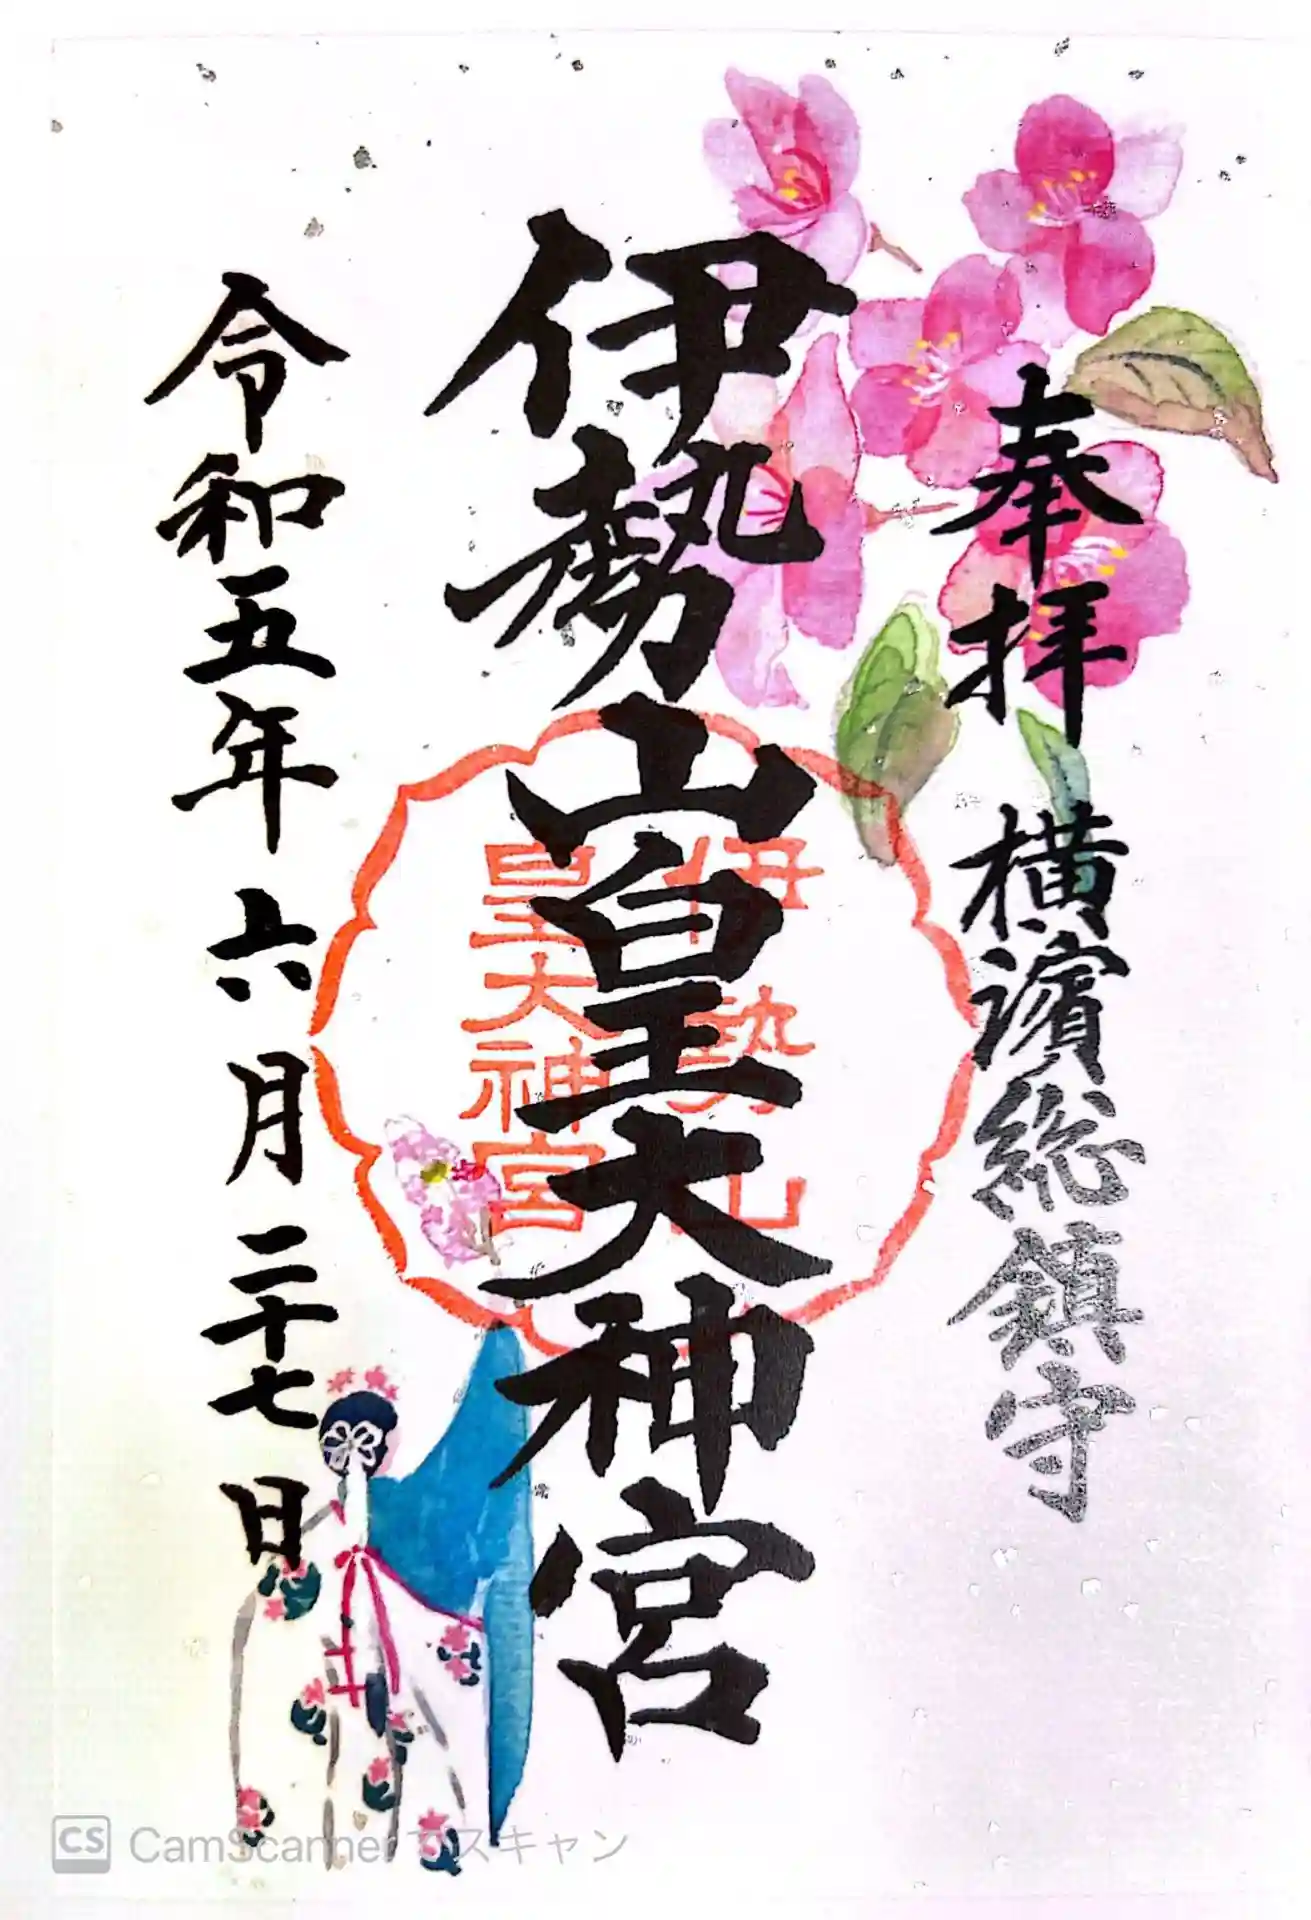 奉拝 横濱総鎮守
伊勢山皇大神宮
伊勢山
皇大神宮
令和五年 六月 二十七日
CS CamScannerでスキャン